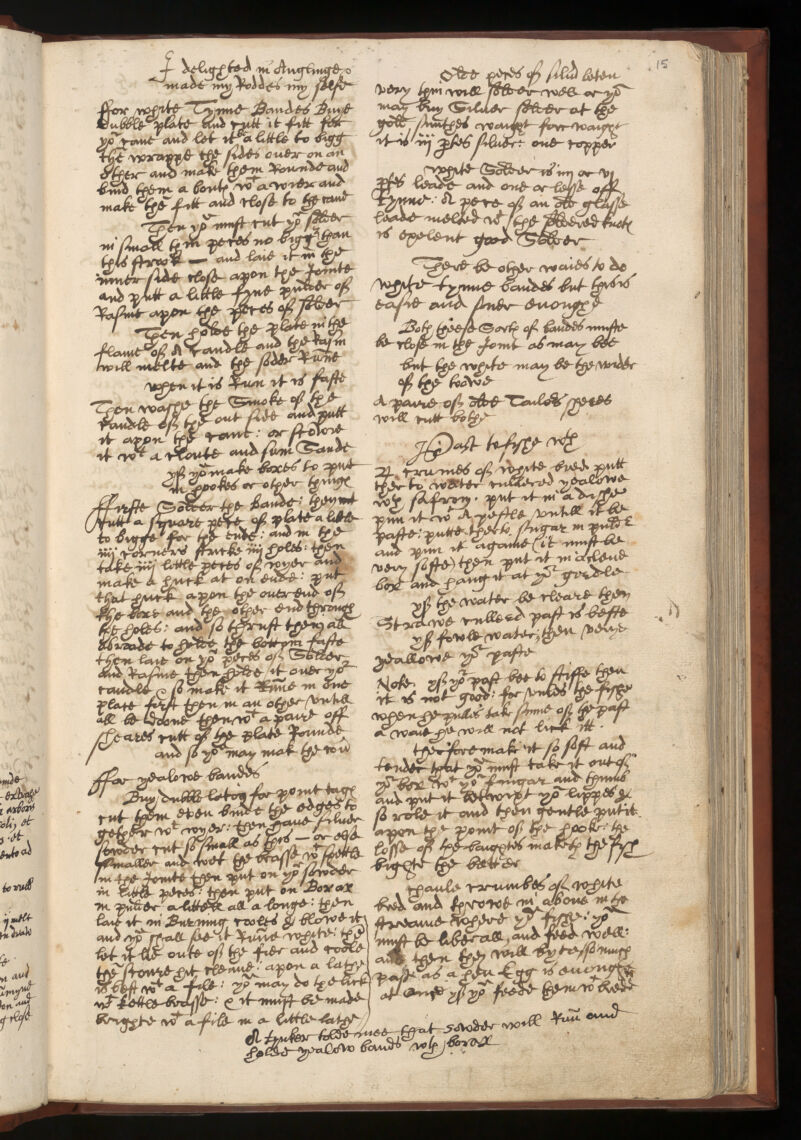 15
I delighted in Anglinge
made my Roddes my selfe
ffor white Tynne Bandes Buye
dubble plate and cutt it fitt for
yor cane and let it a little to bigg
then wrappe the sides over on an
other and make them Rounde and
bind them a bout wt a wier and
make the fitt and close to the cane
Then yo must cut yor solder
in small thin peces no bigger than
this strook — and laie it in the
inner side close apon the Jointe
and putt a little fyne puder of
Rasine apon the peces of solder
Then holde the plate in the
flame of A candle and the Rasin
will melte and the soder Runne
when it is Run it is faste
Then washe the smoke of the
candle of the out side and putt
it apon the cane: or scowre
it wt a cloute and sum Sande
yf yo make boxes to put
in hookes or other things
ffirste Solder the bande: then
cutt a square pece of plate a little
to bigge for the ende: and in the
iiij corners stricke iiij holes: then
take iiij little peces of wyer and
make a huck at on ende: put
that huck apon the over end of
the boxe and the other end through
the holes: and so thrust them all
abroade to holde the bottom faste
then laie on yor peces of Solder
and Rasine then holde it over yor
candle & so make it Runne in one
plate first then in an other untill
all be doone then wt a paire off
sheares cutt of the plate Rounde
and so yo may mak the
ffor yealowe bandes
Buy dubble laton for point tags
cut them even binde the edges to
gether wt wyer: then have silver
sowder cut so small as this — or els
smaller and wet the brasse wt spettle
in the Jointe then put on yor sowder
in little peces: then put on Borax
in puder a littell all a longe: then
laie it in Burning cooles & blowe it
and yo shall see it Runne white: then
let it lie oute of the fier and coole
the scowre hit cleane: apon a lathe
is best wt a file: yo may do the lick
wt kettle brasse: & it must be made
brighte wt a file in a little lathe
A tynker tolde mee that sowder will Run and
holde yealow bands wth borax
Olde peces of silver beten
very thin will solder well or yo
may buy Silver solder at the
golde smithes waight for waight
it is iij ptes silver: one copper
white Solder is iiij or vj
ptes leade and one or lesse off
tynne: A pece of an olde glasse
leade melted wt the soldered knots
is exelent good Solder
There be other waies to do
white tynne bandes but this is
easie and suer enoughe
Both theese Sorts of bandes muste
be close in the Joint as may bee
but the white may be the wider
of the towe
A paire of olde Tailors sheres
will cutt bothe
Past to fyshe wth
R crumes of white bred putt
ther to water cullered yealowe
wth safron. put it in a dishe
pun it wt A pestle untill it be
paste: putte therto sugar in puder
and pun it againe (it must be
very softe) then put it in a clene
box and hang it at yor gerdle
yf the water be cleare then
Strawe cullerd past is beste
yf fowle water, then verie
yeallowe yor paste
Note. yf yor past bee to stiffe then
it is not good: for unles the fyshe
when he pulls tak sume of the past
a waie he will not lick itt
therfore make it so soft and
tender that yo must take it out of
yor box wt yor fingar and thumb
and put it betwixt yor lippes &
so role it and then gentle put it
apon the point of the hooke: the
losse of the baightes maketh the fysh
bighte the better
thaule crumbes of white
bred and throwe in above in the
streame where yo fyshe: yo
must be liberall, and feed well:
and then they will byte so much
paste as a hen Egg is enoughe
at once yf yo feede them wt bredd